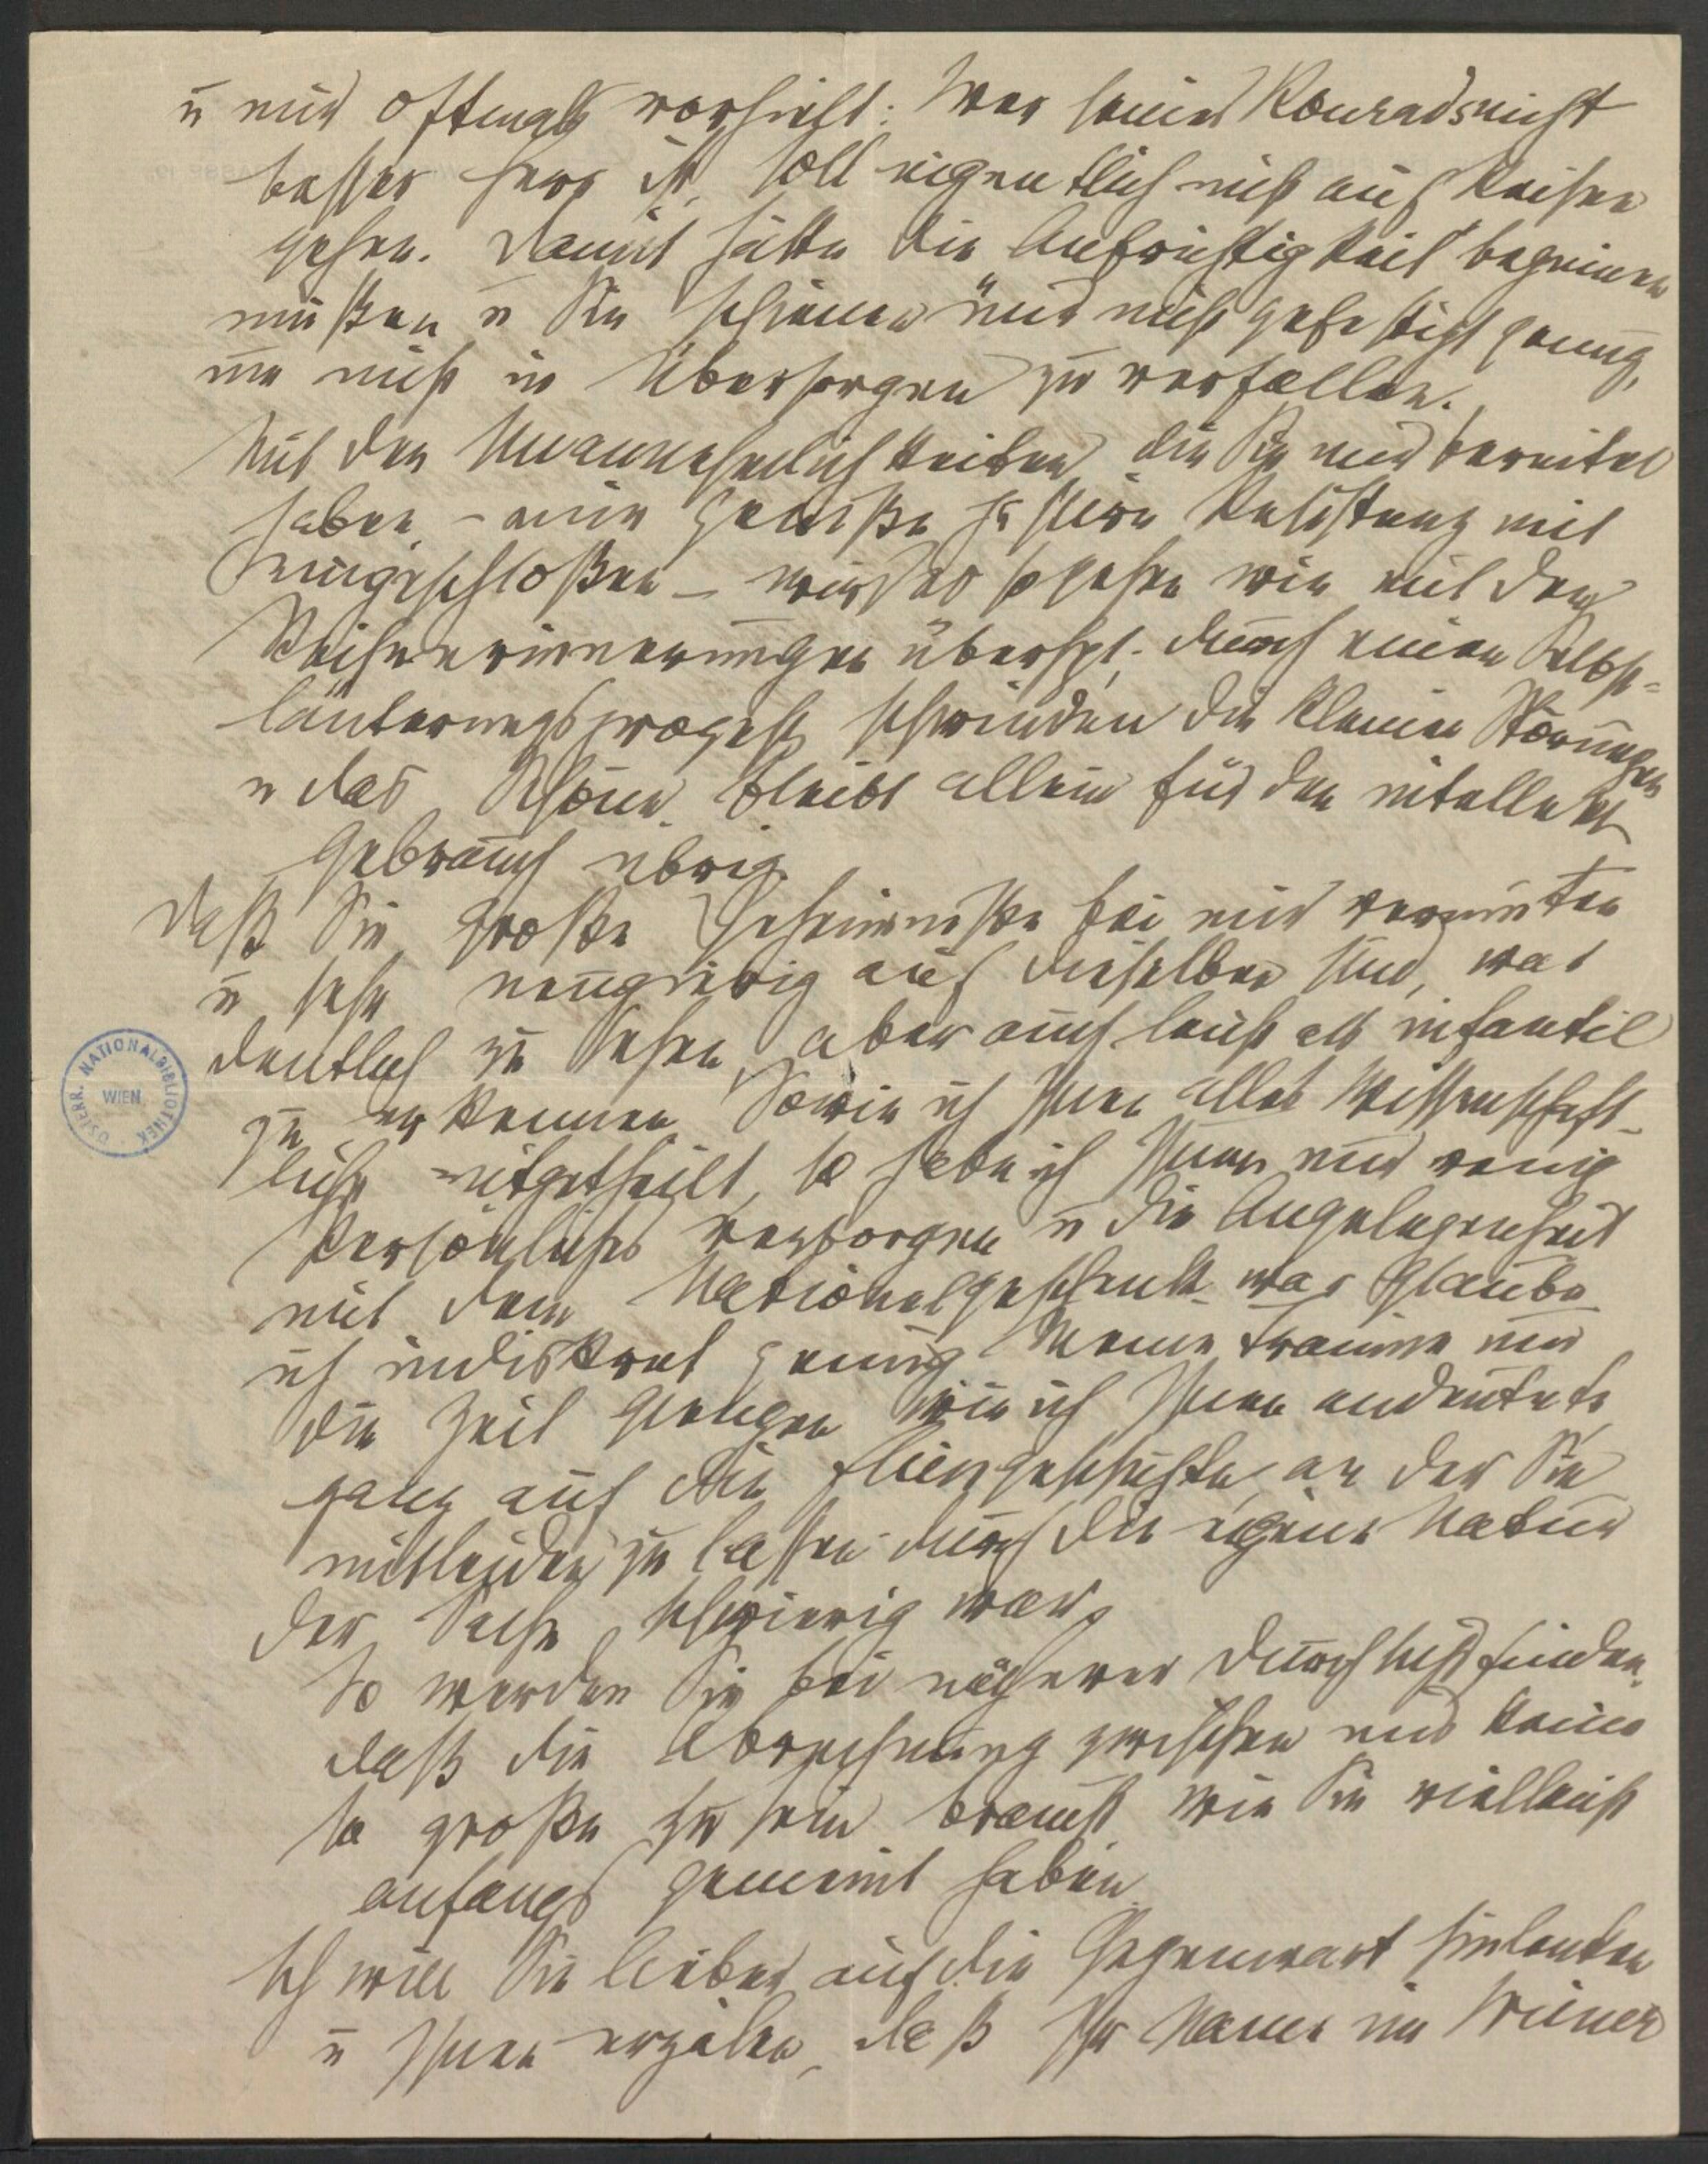 u mir oftmals vorhielt: Wer seines Konrads nicht
besser Herr ist, soll eigentlich nicht auf Reisen
gehen. Damit hätte die Aufrichtigkeit beginnen
müßen u Sie schienen mir nicht gefestigt genug,
um nicht in Übersorgen zu verfallen.
Mit den Unannehmlichkeiten, die Sie mir bereitet
haben, – eine gewiße passive Resistenz mit
eingeschloßen – wird es so gehen wie mit den
Reiseerinnerungen überhpt; durch einen Selbst-
läuterungsprozeß schwinden die kleinen Störungen
u das Schöne bleibt allein für den intellekt
Gebrauch übrig.
Daß Sie große Geheimniße bei mir vermuten
u sehr neugierig auf dieselben sind, war
deutlich zu sehen, aber auch leicht als infantil
zu erkennen. Sowie ich Ihnen alles Wissenschaft-
liche mitgetheilt, so habe ich Ihnen nur wenig
Persönliches verborgen u die Angelegenheit
mit dem Nationalgeschenk war glaube
ich indiskret genug. Meine Träume um
die Zeit giengen wie ich Ihnen andeutete,
ganz auf die Fließgeschichte, an der Sie
mitleiden zu lassen durch die Natur
der Sache schwierig war.
So werden Sie bei näherer Durchsicht finden,
daß die Abrechnung zwischen uns keine
so große zu sein braucht wie Sie vielleicht
anfangs gemeint haben.
Ich will Sie lieber auf die Gegenwart hinlenken
u Ihnen erzälen, daß Ihr Name im Wiener
ÖSTERR. NATIONALBIBLIOTHEK
WIEN